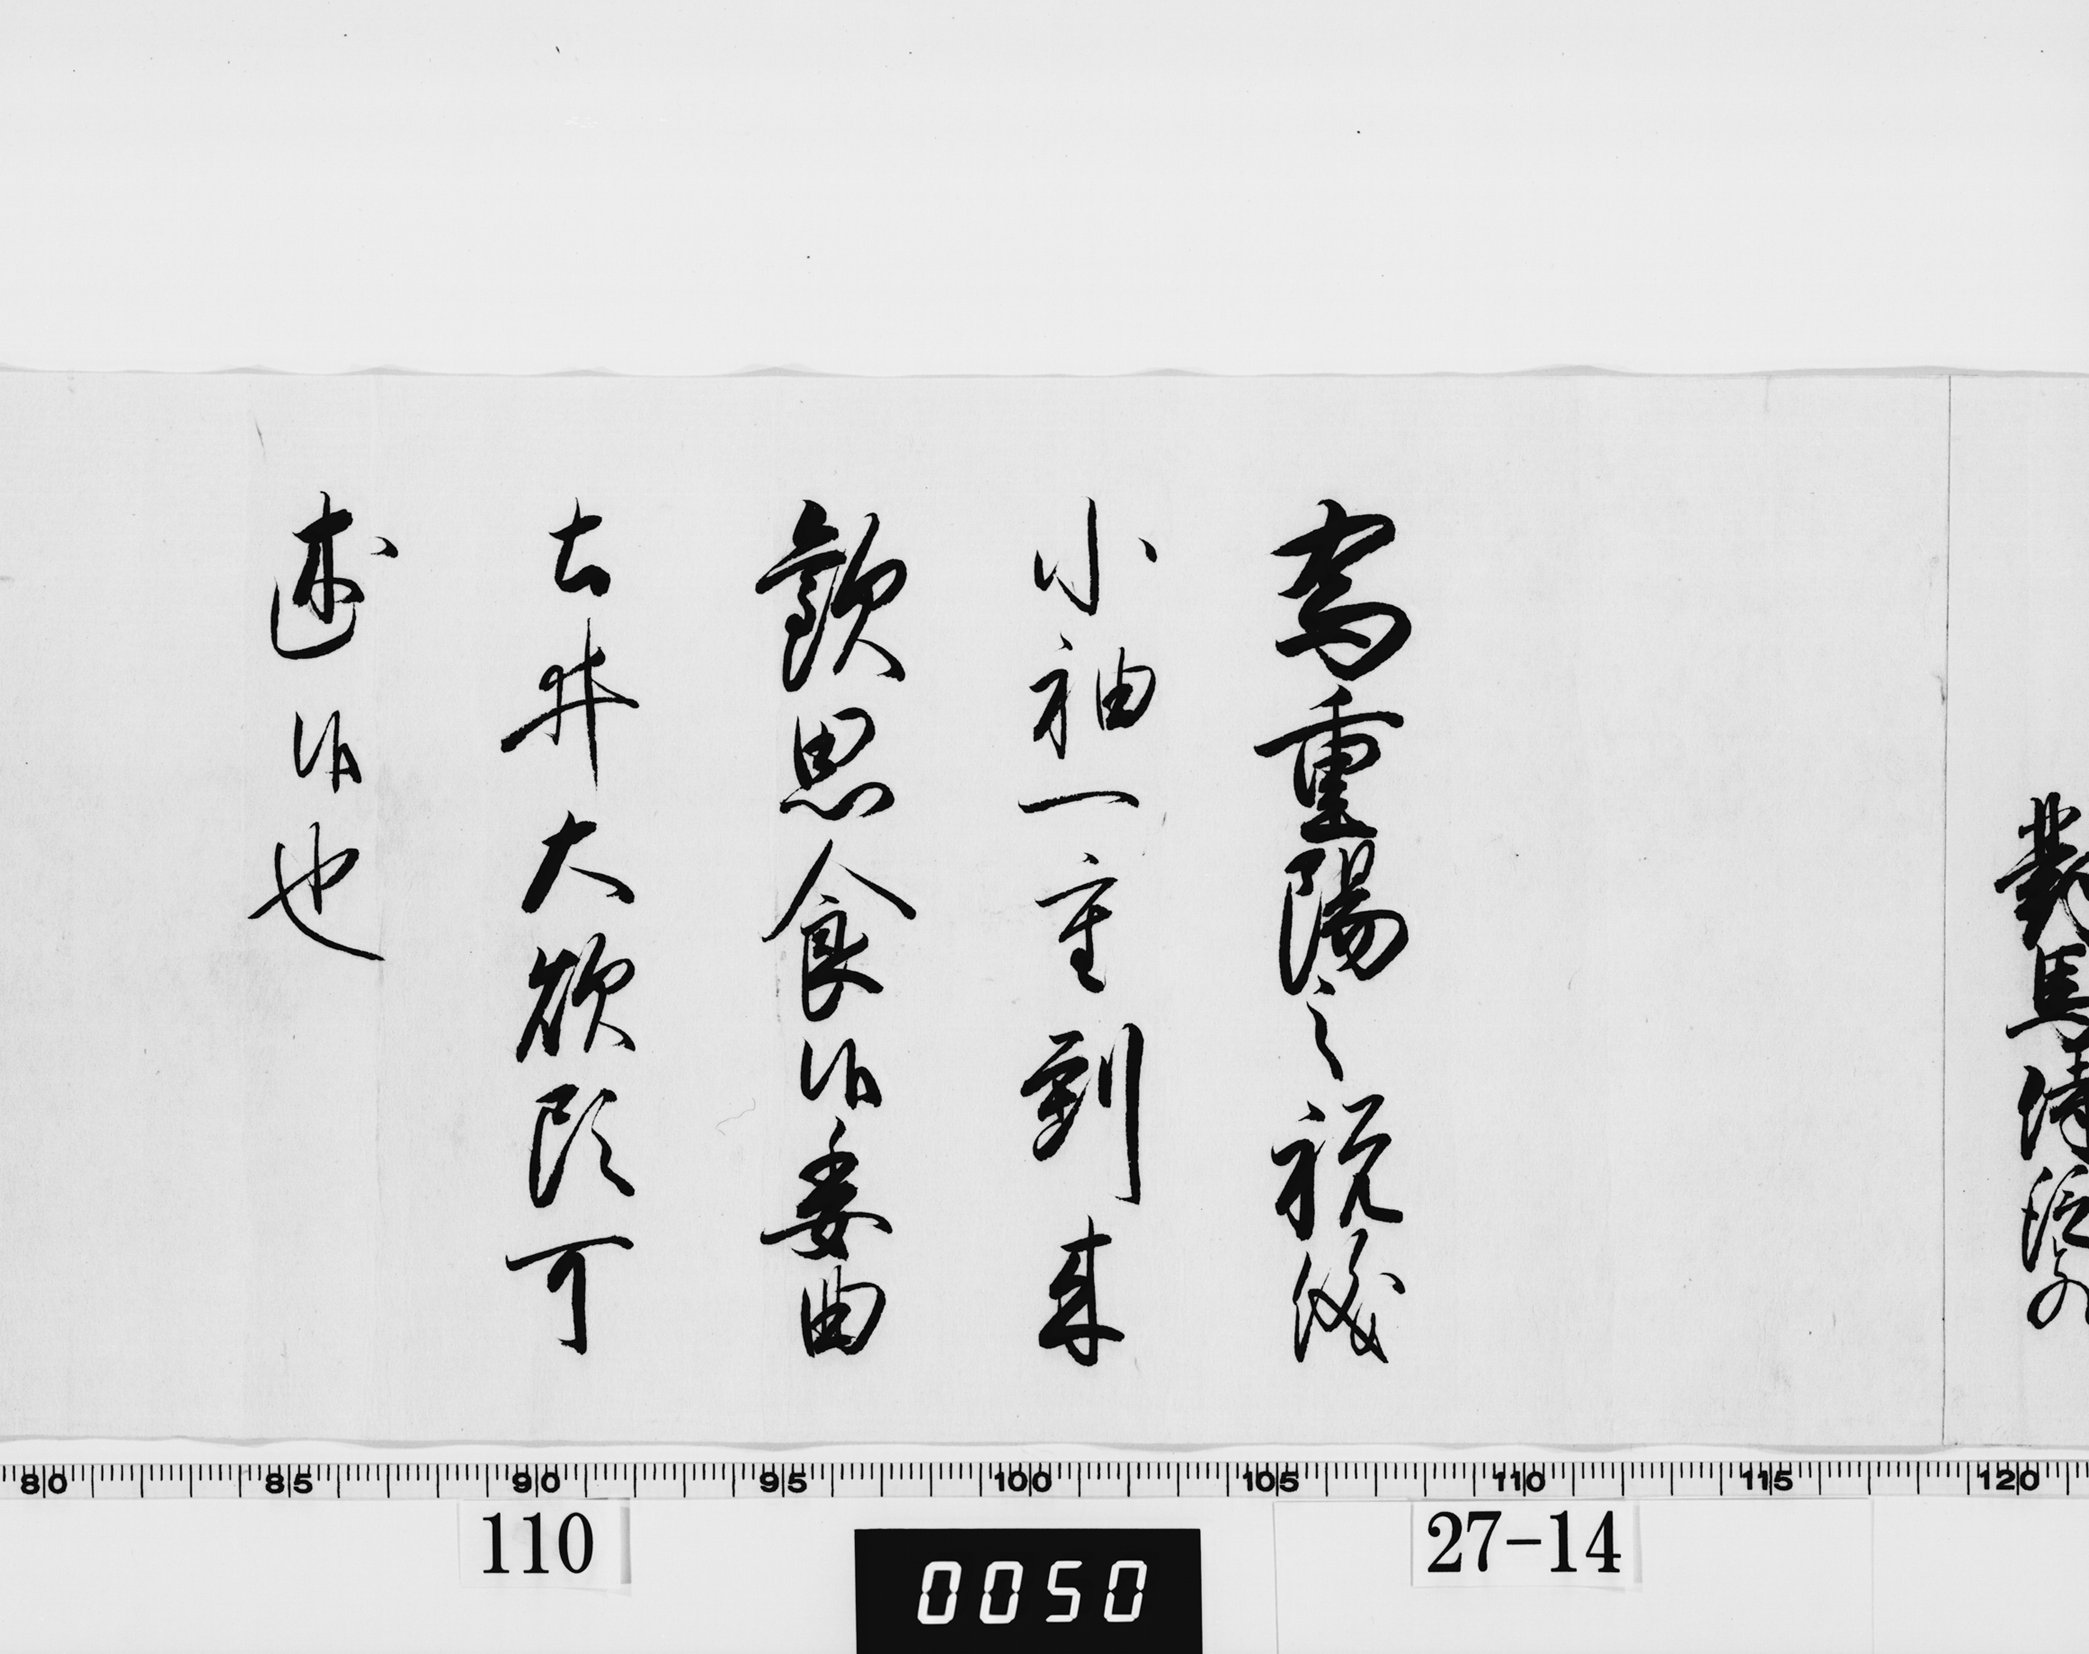 為重陽之祝儀
小袖一重到来
歓思食候委曲
土井大炊頭可
述候也
對馬侍従との
80 85 90 95 100 105 110 115 120
110
0050
27-14